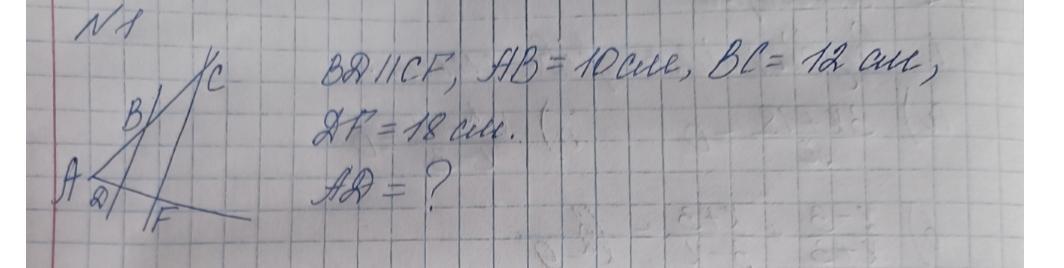 N1
BD||CF, AB = 10 см, BC = 12 см,
DF = 18 см.
AD = ?
C
B
A
D
F